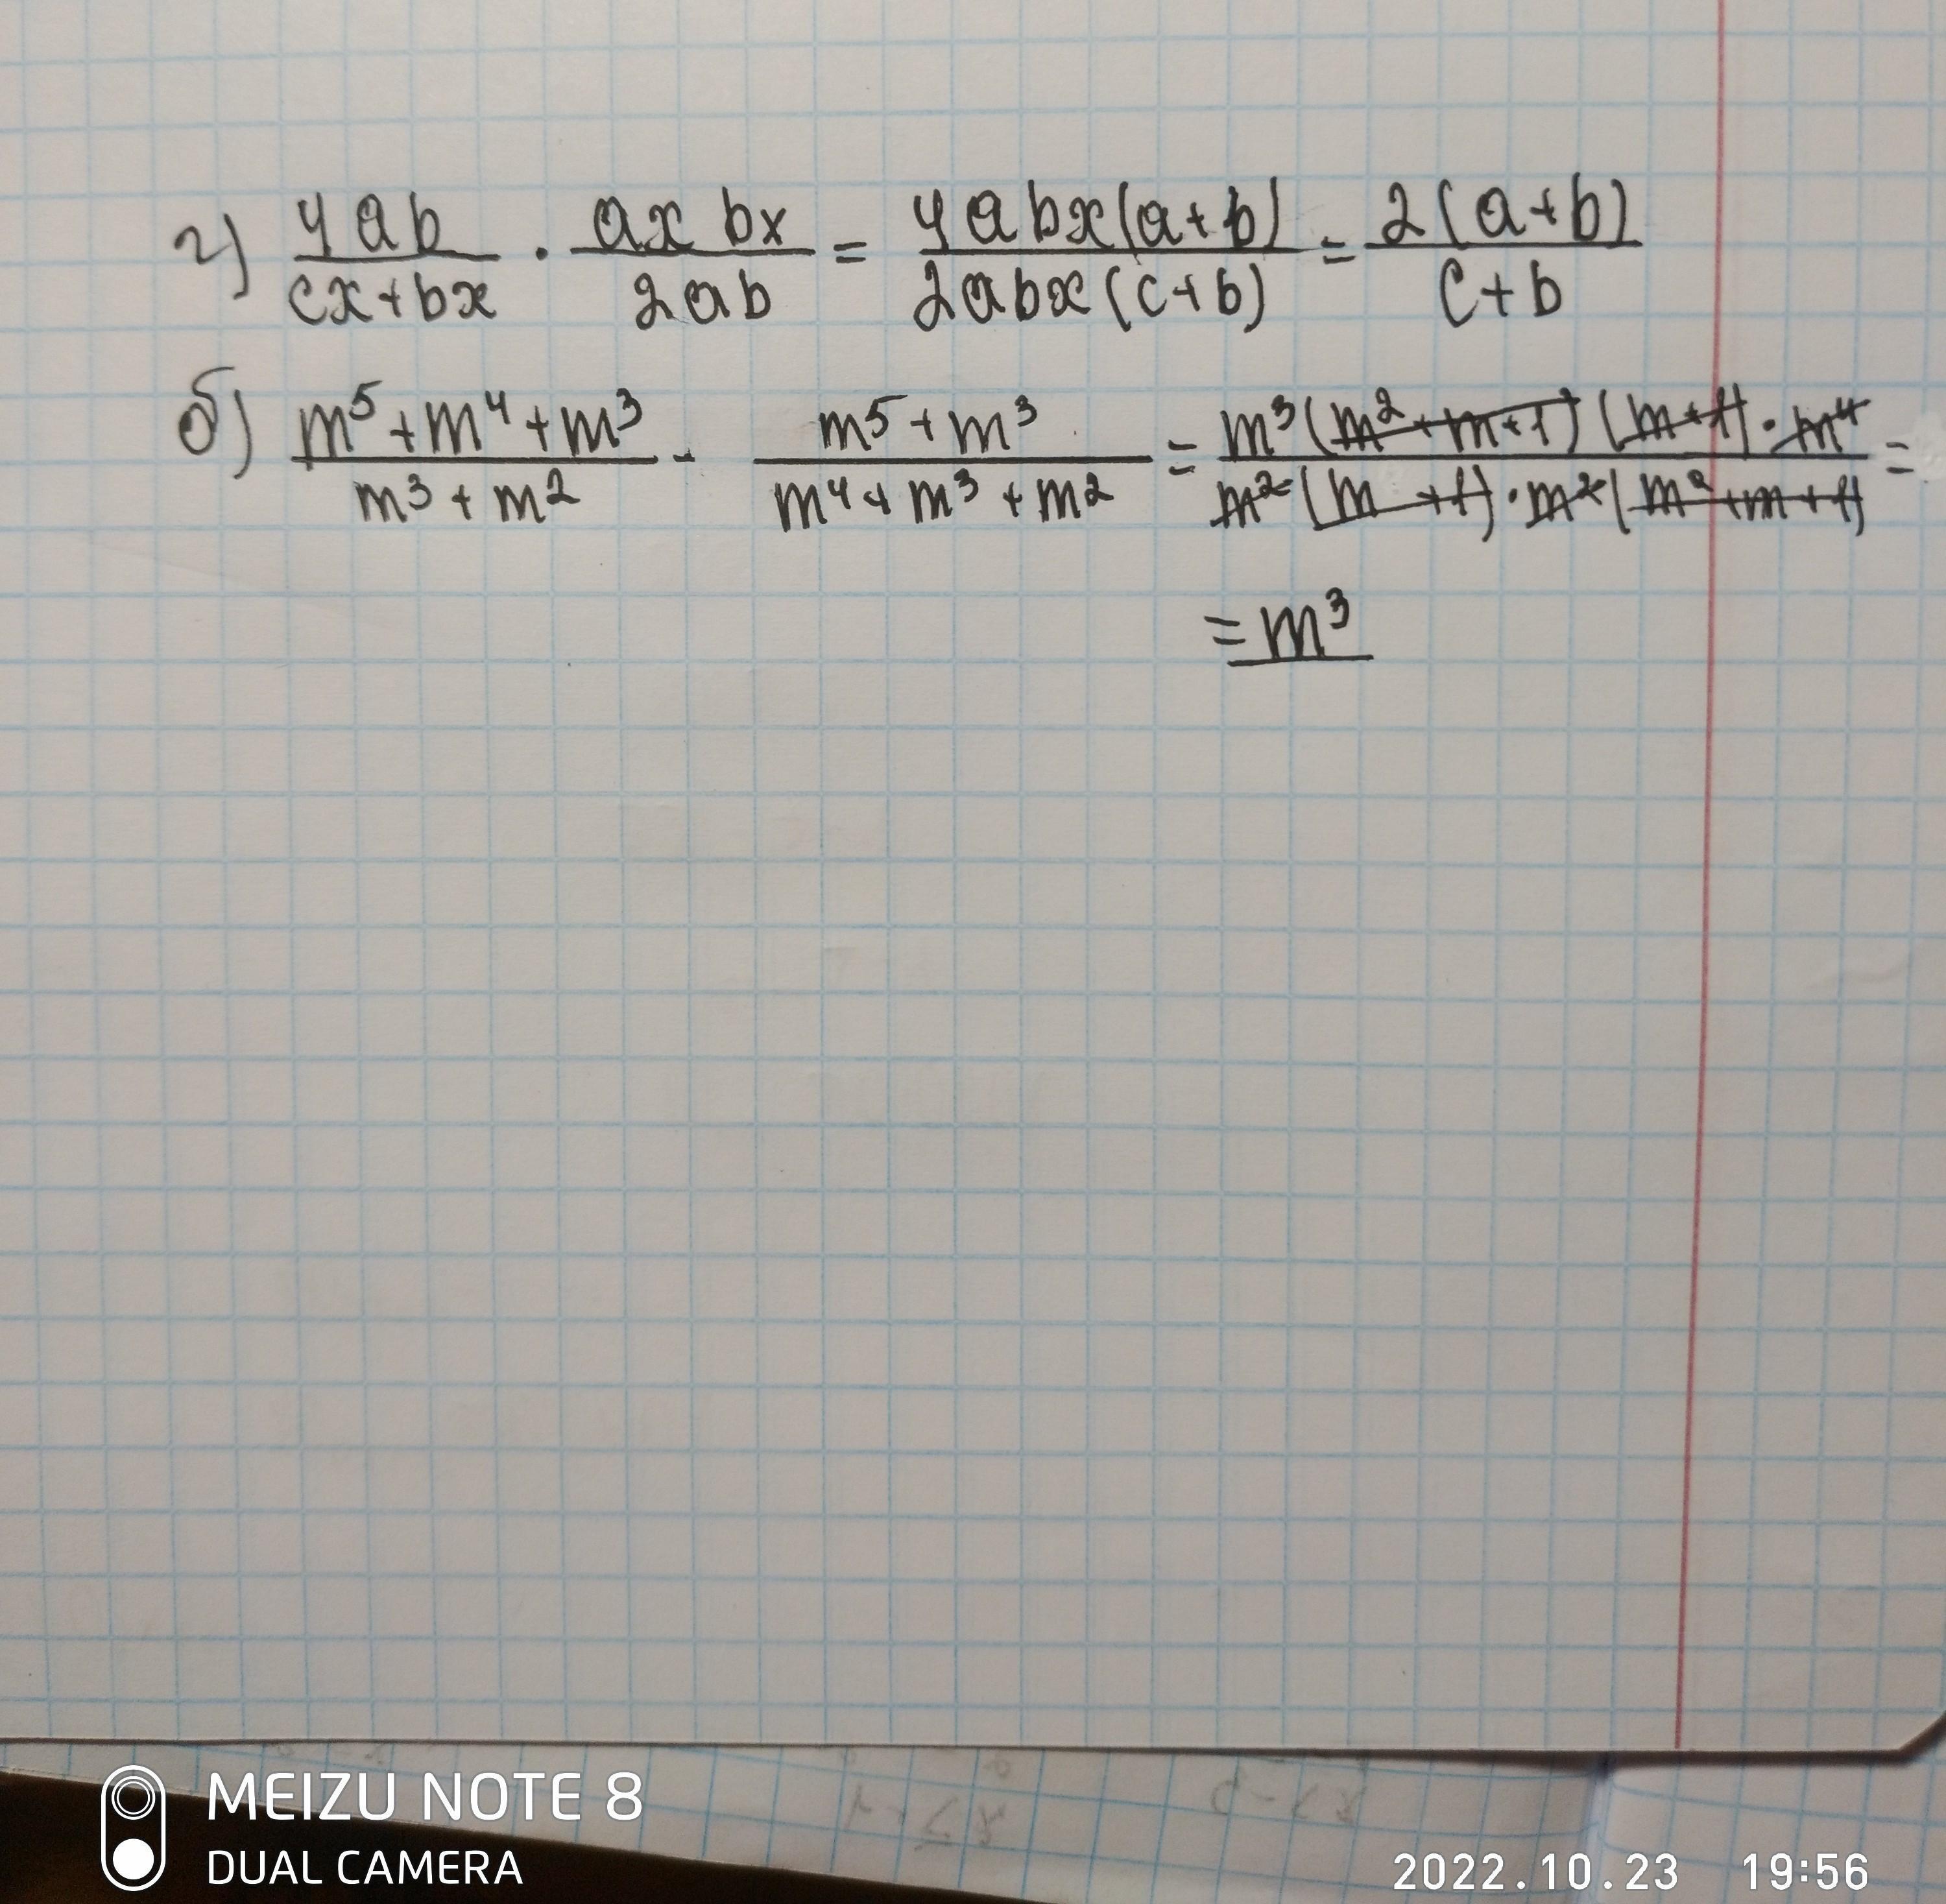 г) 4ab/cx+bx · ax bx/2ab = 4abx(a+b)/2abx(c+b) = 2(a+b)/c+b
б) m⁵+m⁴+m³/m³+m² · m⁵+m³/m⁴+m³+m² = m³(m²+m+1)(m+1)·m⁴/m²(m+1)·m²(m²+m+1) =
= m³
MEIZU NOTE 8
DUAL CAMERA
2022.10.23 19:56